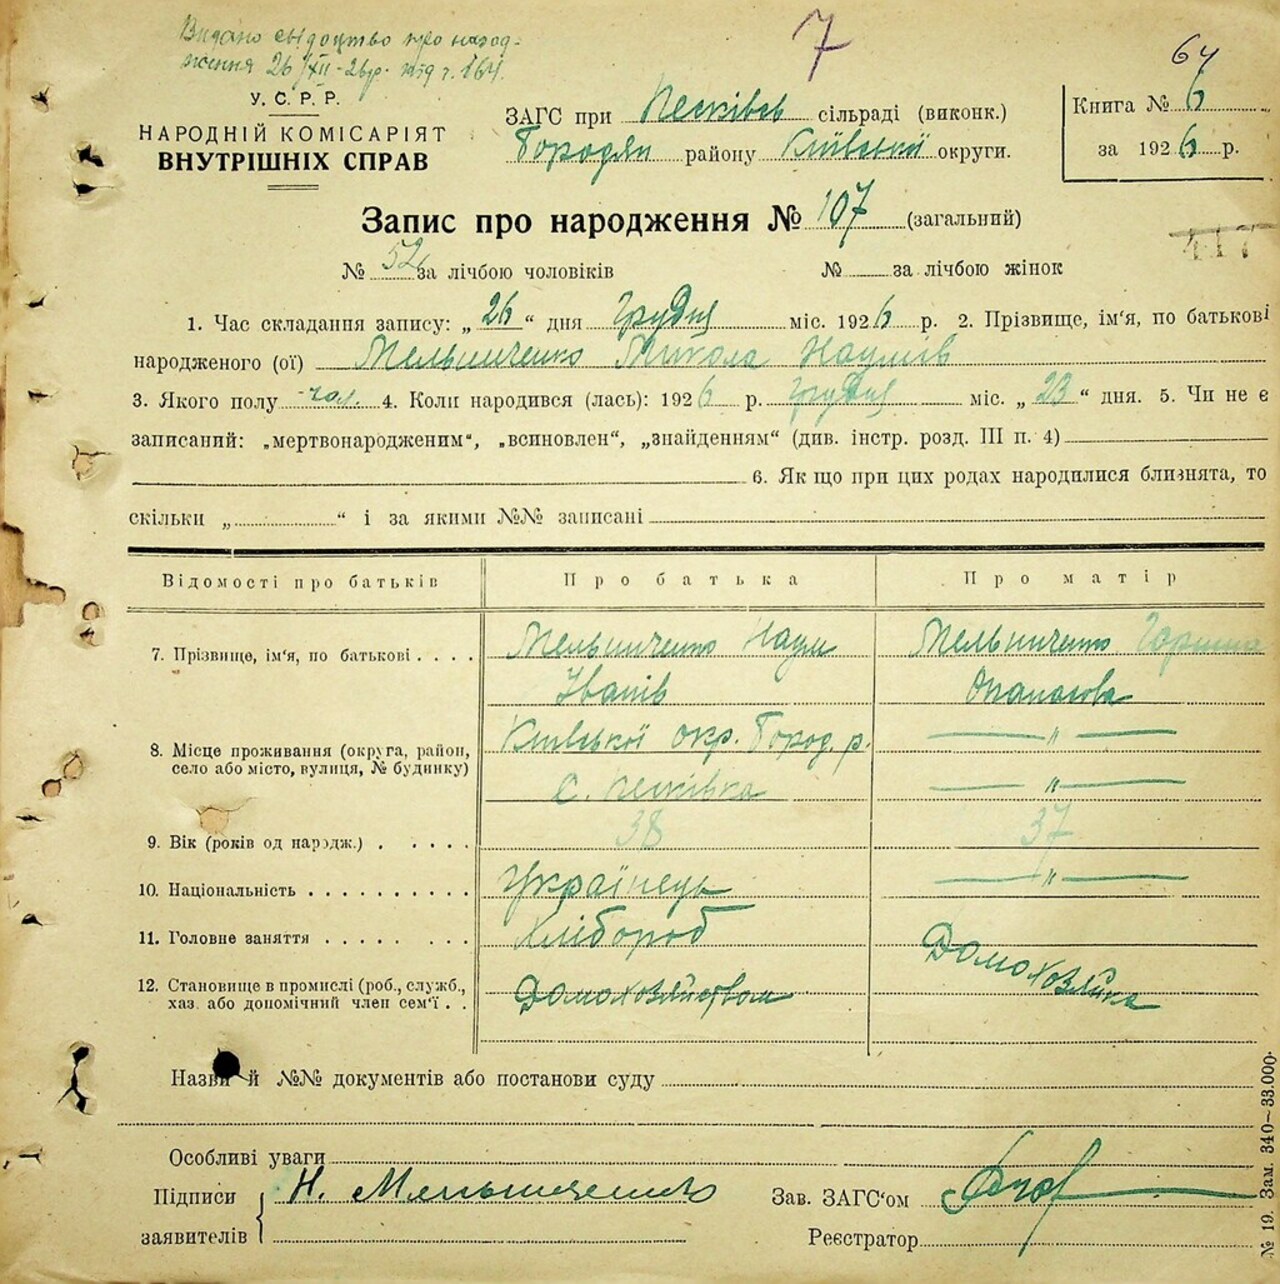 Видано свідоцтво про народ-
ження 26/XII-26р. №59 г. 164.
7
64
У. С. Р. Р.
НАРОДНІЙ КОМІСАРІЯТ
ВНУТРІШНІХ СПРАВ
ЗАГС при Песківсь сільраді (виконк.)
Городян району Київської округи.
Книга № 6
за 1926 р.
Запис про народження № 107 (загальний)
417
№ 52 за лічбою чоловіків № за лічбою жінок
1. Час складання запису: „ 26 “ дня Грудня міс. 1926 р. 2. Прізвище, ім'я, по батькові
народженого (ої) Мельниченко Микола Наумів
3. Якого полу чол. 4. Коли народився (лась): 1926 р. Грудня міс. „ 23 “ дня. 5. Чи не є
записаний: „мертвонародженим“, „всиновлен“, „знайденням“ (див. інстр. розд. III п. 4)
6. Як що при цих родах народилися близнята, то
скільки „ “ і за якими №№ записані
Відомості про батьків Про батька Про матір
7. Прізвище, ім'я, по батькові . . . . Мельниченко Наум Мельниченко Горпина
Іванів Опанасова
8. Місце проживання (округа, район, Київської окр. Город. р. — " —
село або місто, вулиця, № будинку) с. Песківка — " —
9. Вік (років од народж.) . . . . . 38 37
10. Національність . . . . . . . . . . Українець — " —
11. Головне заняття . . . . . . . . Хлібороб
12. Становище в промислі (роб., служб., Домохозяйством Домохозяйка
хаз. або допомічний член сем'ї . .
Назви й №№ документів або постанови суду
Особливі уваги
Підписи Н. Мельниченко Зав. ЗАГС'ом
заявителів Реєстратор
№ 19. Зам. 340—33.000.